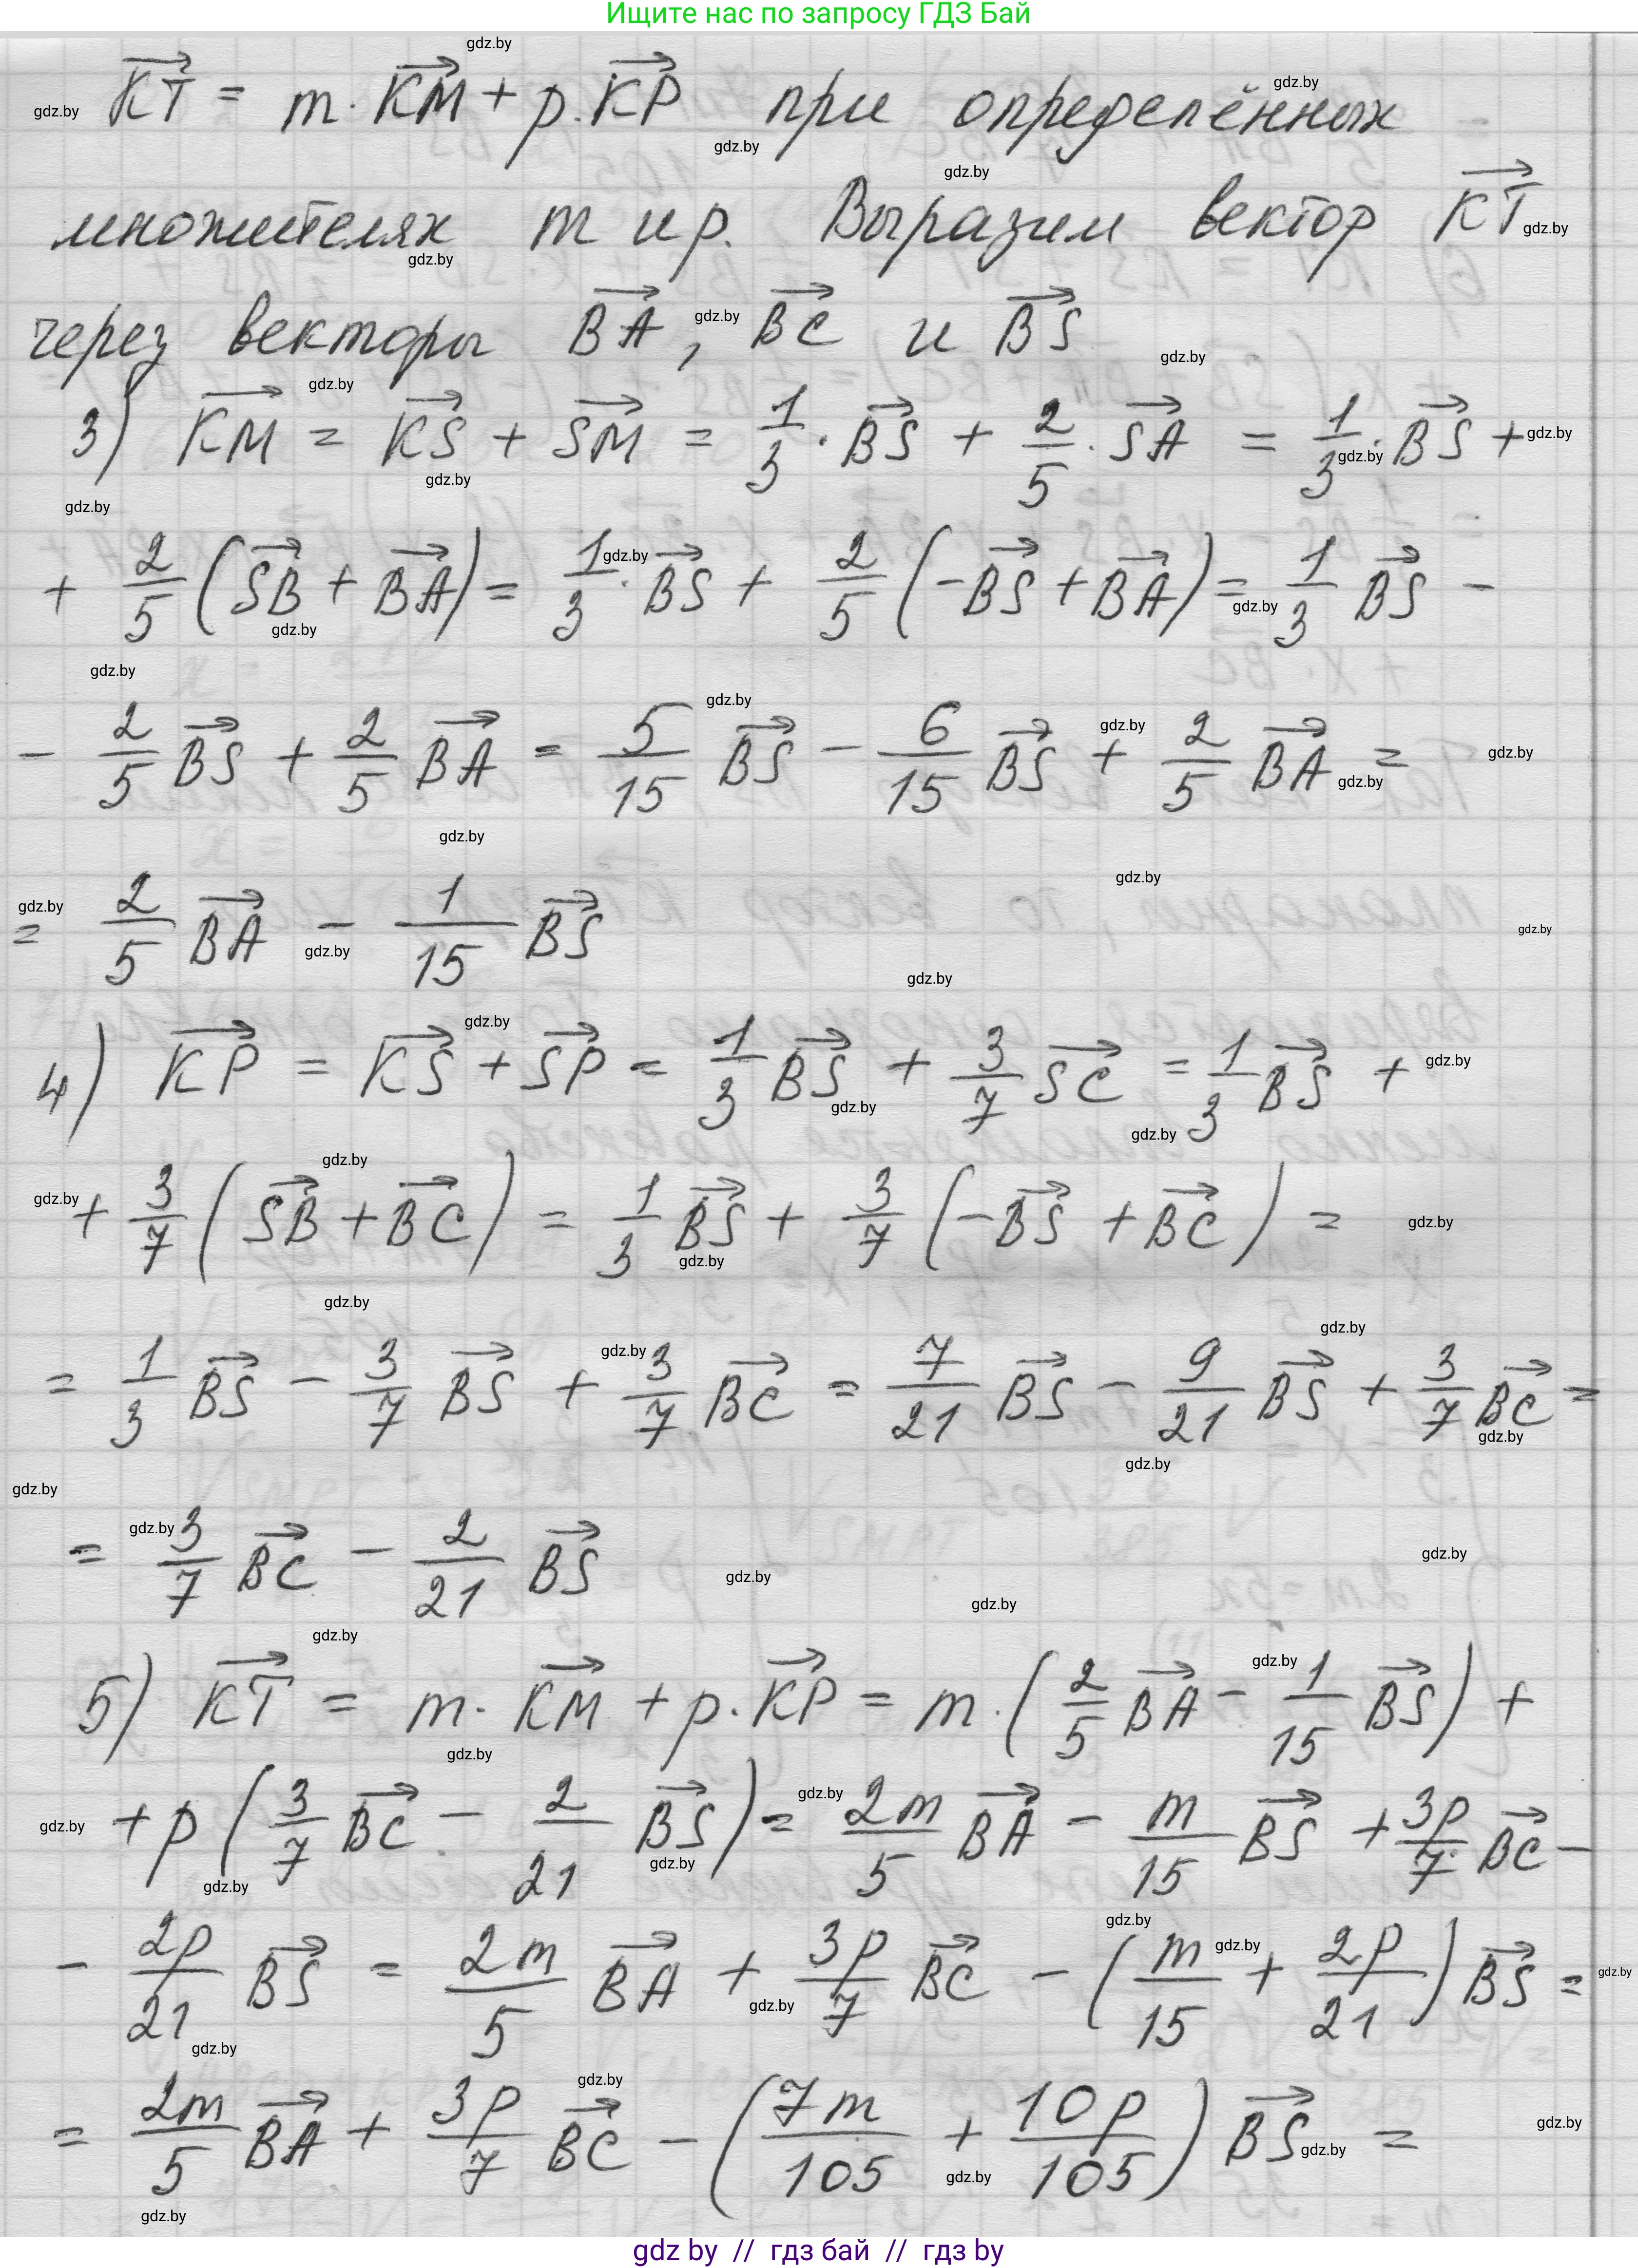 Ищите нас по запросу ГДЗ Бай
KT = m · KM + p · KP при определённых
множителях m и p. Выразим вектор KT
через векторы BA, BC и BS
3) KM = KS + SM = 1/3 · BS + 2/5 · SA = 1/3 · BS +
+ 2/5 (SB + BA) = 1/3 · BS + 2/5 (-BS + BA) = 1/3 BS -
- 2/5 BS + 2/5 BA = 5/15 BS - 6/15 BS + 2/5 BA =
= 2/5 BA - 1/15 BS
4) KP = KS + SP = 1/3 BS + 3/7 SC = 1/3 BS +
+ 3/7 (SB + BC) = 1/3 BS + 3/7 (-BS + BC) =
= 1/3 BS - 3/7 BS + 3/7 BC = 7/21 BS - 9/21 BS + 3/7 BC =
= 3/7 BC - 2/21 BS
5) KT = m · KM + p · KP = m · (2/5 BA - 1/15 BS) +
+ p (3/7 BC - 2/21 BS) = 2m/5 BA - m/15 BS + 3p/7 BC -
- 2p/21 BS = 2m/5 BA + 3p/7 BC - (m/15 + 2p/21) BS =
= 2m/5 BA + 3p/7 BC - (7m/105 + 10p/105) BS =
gdz by // гдз бай // гдз by